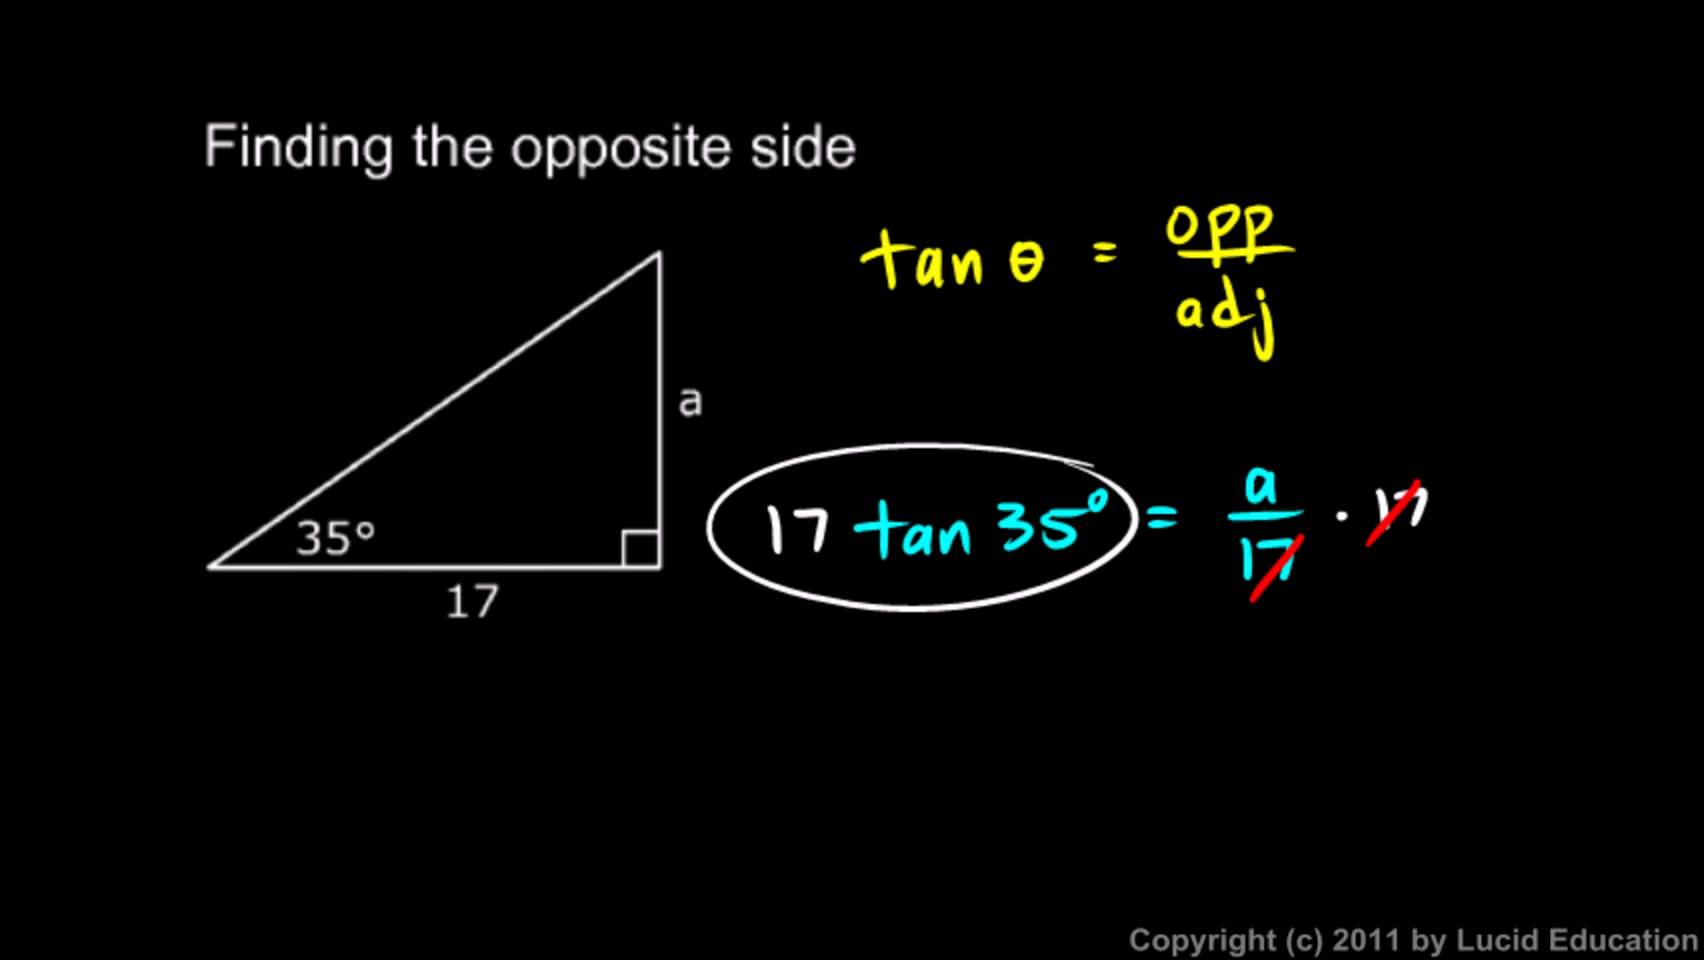 Finding the opposite side
tan θ = opp/adj
a
17 tan 35° = a/17 · 17
35°
17
Copyright (c) 2011 by Lucid Education